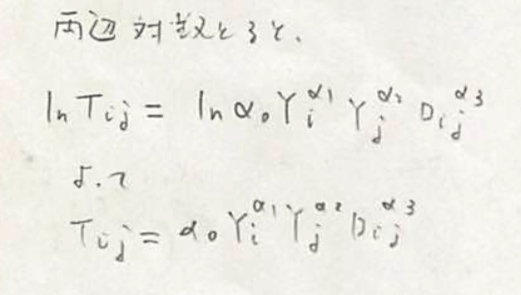 両辺対数とると、
ln Tij = ln α₀ Yi^α1 Yj^α2 Dij^α3
よって
Tij = α₀ Yi^α1 Yj^α2 Dij^α3